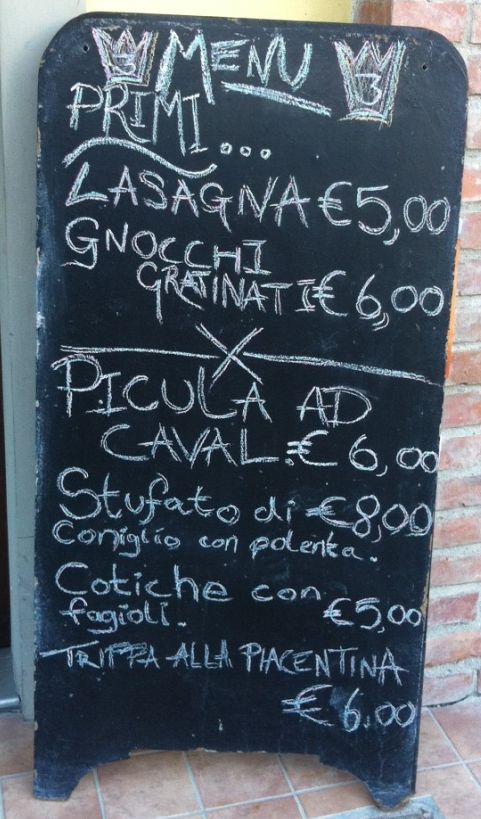 3 MENU 3
PRIMI...
LASAGNA €5,00
GNOCCHI
GRATINATI € 6,00
PICULA AD
CAVAL. € 6,00
Stufato di €8,00
Coniglio con polenta.
Cotiche con
fagioli. €5,00
TRIPPA ALLA PIACENTINA
€ 6.00